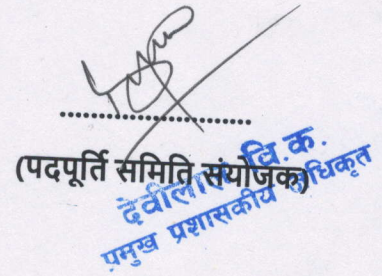 (पदपूर्ति समिति संयोजक)
देवीलाल वि.क.
प्रमुख प्रशासकीय अधिकृत